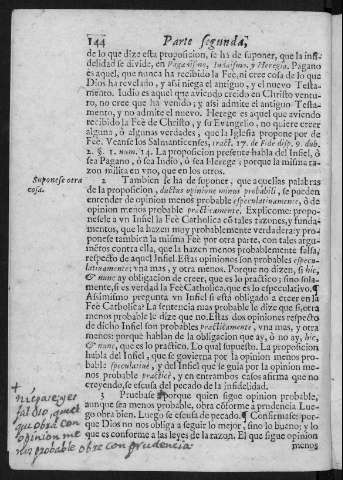 144 Parte segunda,
de lo que dize esta proposicion, se ha de suponer, que la infi-
delidad se divide, en Paganismo, Iudaismo, y Heregia. Pagano
es aquel, que nunca ha recibido la Feè, ni cree cosa de lo que
Dios ha revelado, y assi niega el antiguo, y el nuevo Testa-
mento. Iudio es aquel que aviendo creido en Christo ventu-
ro, no cree que ha venido; y assi admite el antiguo Testa-
mento, y no admite el nuevo. Herege es aquel que aviendo
recibido la Feè de Christo, y su Evangelio, no quiere creer
alguna, ò algunas verdades, que la Iglesia propone por de
Feè. Veanse los Salmanticenses, tract. 17. de Fide disp. 9. dub.
2. §. 1. num. 14. La proposicion presente habla del Infiel, ò
sea Pagano, ò sea Indio, ò sea Herege; porque la misma ra-
zon milita en vno, que en los otros.
Suponese otra
cosa.
2 Tambien se ha de suponer, que aquellas palabras
de la proposicion, ductus opinione minus probabili, se pueden
entender de opinion menos probable especulativamente, ò de
opinion menos probable practicamente. Explicome: propo-
nesele a vn Infiel la Feè Catholica cõ tales razones, y funda-
mentos, que la hazen muy probablemente verdadera: y pro-
ponese tambien la misma Feè por otra parte, con tales argu-
mẽtos contra ella, que la hazen menos probablemente falsa,
respecto de aquel Infiel. Estas opiniones son probables especu-
lativamente; vna mas, y otra menos. Porque no dizen, si hic,
& nunc ay obligacion de creer, que es lo practico; sino sola-
mente, si es verdad la Feè Catholica, que es lo especulativo. ¶
Assimismo pregunta vn Infiel si està obligado a creer en la
Feè Catholica? La sentencia mas probable le dize que si, otra
menos probable le dize que no. Estas dos opiniones respecto
de dicho Infiel son probables practicamente, vna mas, y otra
menos: porque hablan de la obligacion que ay, ò no ay, hic,
& nunc, que es lo practico. Lo qual supuesto. La proposicion
habla del Infiel, que se govierna por la opinion menos pro-
bable speculativè, y del Infiel que se guia por la opinion menos
probable practicè, y en entrambos casos afirma que no
creyendo, se escusa del pecado de la infidelidad.
3 Pruebase porque quien sigue opinion probable,
aunque sea menos probable, obra cõforme a prudencia. Luego
obra bien. Luego se escusa de pecado. ¶ Confirmase: por-
que Dios no nos obliga a seguir lo mejor, sino lo bueno; y lo
que es conforme a las leyes de la razon. El que sigue opinion
menos
obra con
opinion me
nos probable obre con prudencia